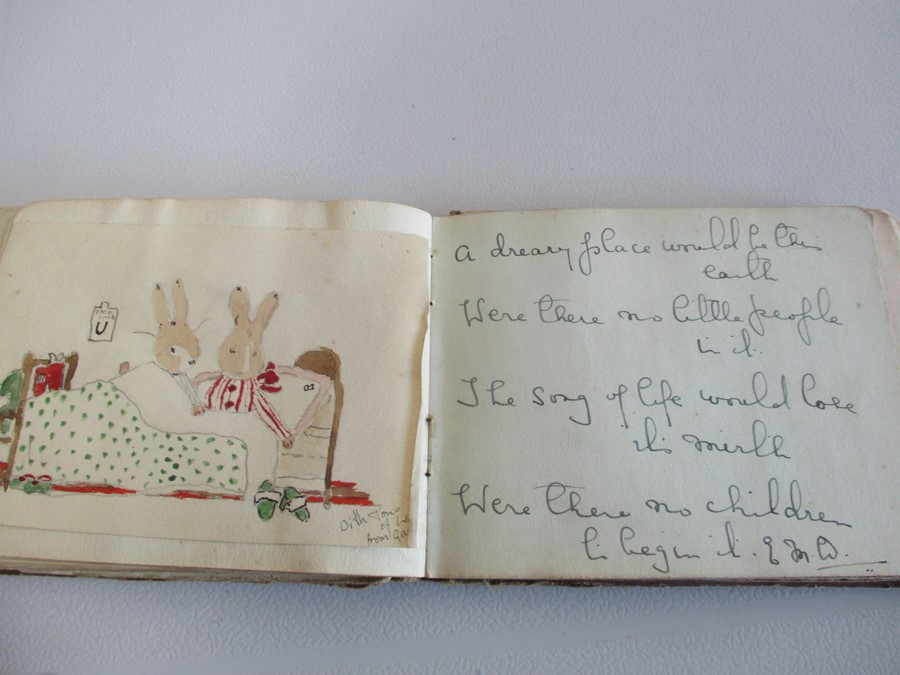 U
02
With
of
from
A dreary place would be this
earth
Were there no little people
in it.
The song of life would lose
its mirth
Were there no children
to begin it. E.M.D.